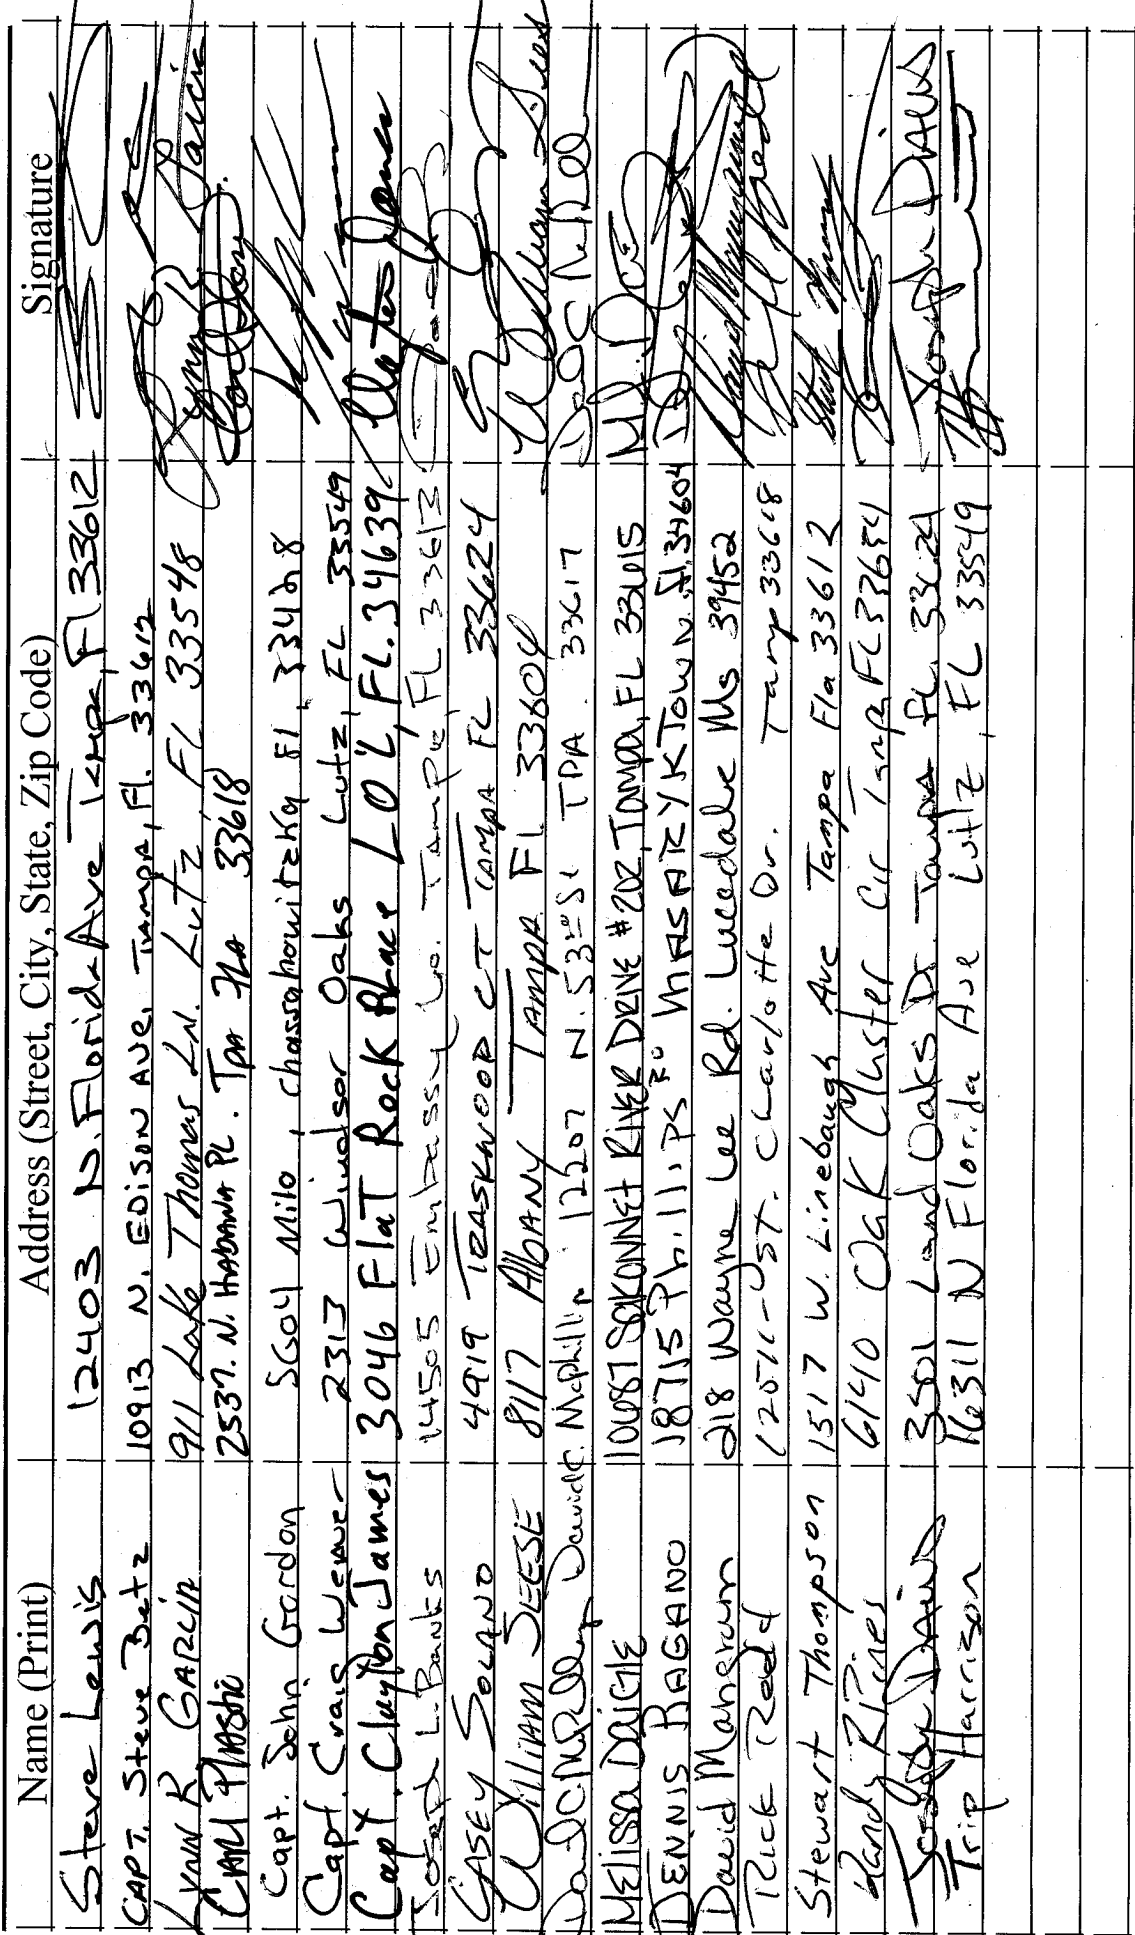 Name (Print) Address (Street, City, State, Zip Code) Signature
Steve Lewis 12403 N. Florida Ave Tampa, Fl 33612
CAPT. Steve Betz 10913 N. EDISON AVE, TAMPA, Fl. 33612
Lynn R GARCIA 911 Lake Thomas Ln. Lutz FL 33548 Lynn R Garcia
CARl PlAStic 2537. N. HABANA PL. TPA FLA 33618
Capt. John Gordon 5604 Milo, chassahowitzka fl, 33428
Capt. Craig Weaver 2313 Windsor Oaks Lutz, FL 33549
Capt. Clayton James 3046 Flat Rock Place LO'L, FL. 34639 Clayton James
Joseph L. Banks 14505 Embassy Tampa, FL 33613
CASEY SOLANO 4919 TRASKWOOD CT TAMPA FL 33624
William SEESE 8117 AlbANY TAMPA Fl 33604 William Seese
David C McPhillip 12207 N. 53rd St TPA. 33617
MELISSA DAIGLE 10687 SAKONNET RIVER DRIVE #202, TAMPA, FL 33615
DENNIS RAGANO 18715 Phillips RD MASARYKTOWN. fl. 34604
David Mangrum 218 Wayne Lee Rd. Lucedale Ms 39452 David Mangrum
Rick Redd St. Charlotte Dr. Tamp 33618
Stewart Thompson 1517 W. Linebaugh Ave Tampa Fla 33612
Randy R Pires 6140 Oak Cluster Cir Tampa FL
Joseph DAVIS 3501 Land Oaks Dr. Tampa FL. 33624 Joseph DAVIS
Trip Harrison 16311 N Florida Ave Lutz, FL 33549